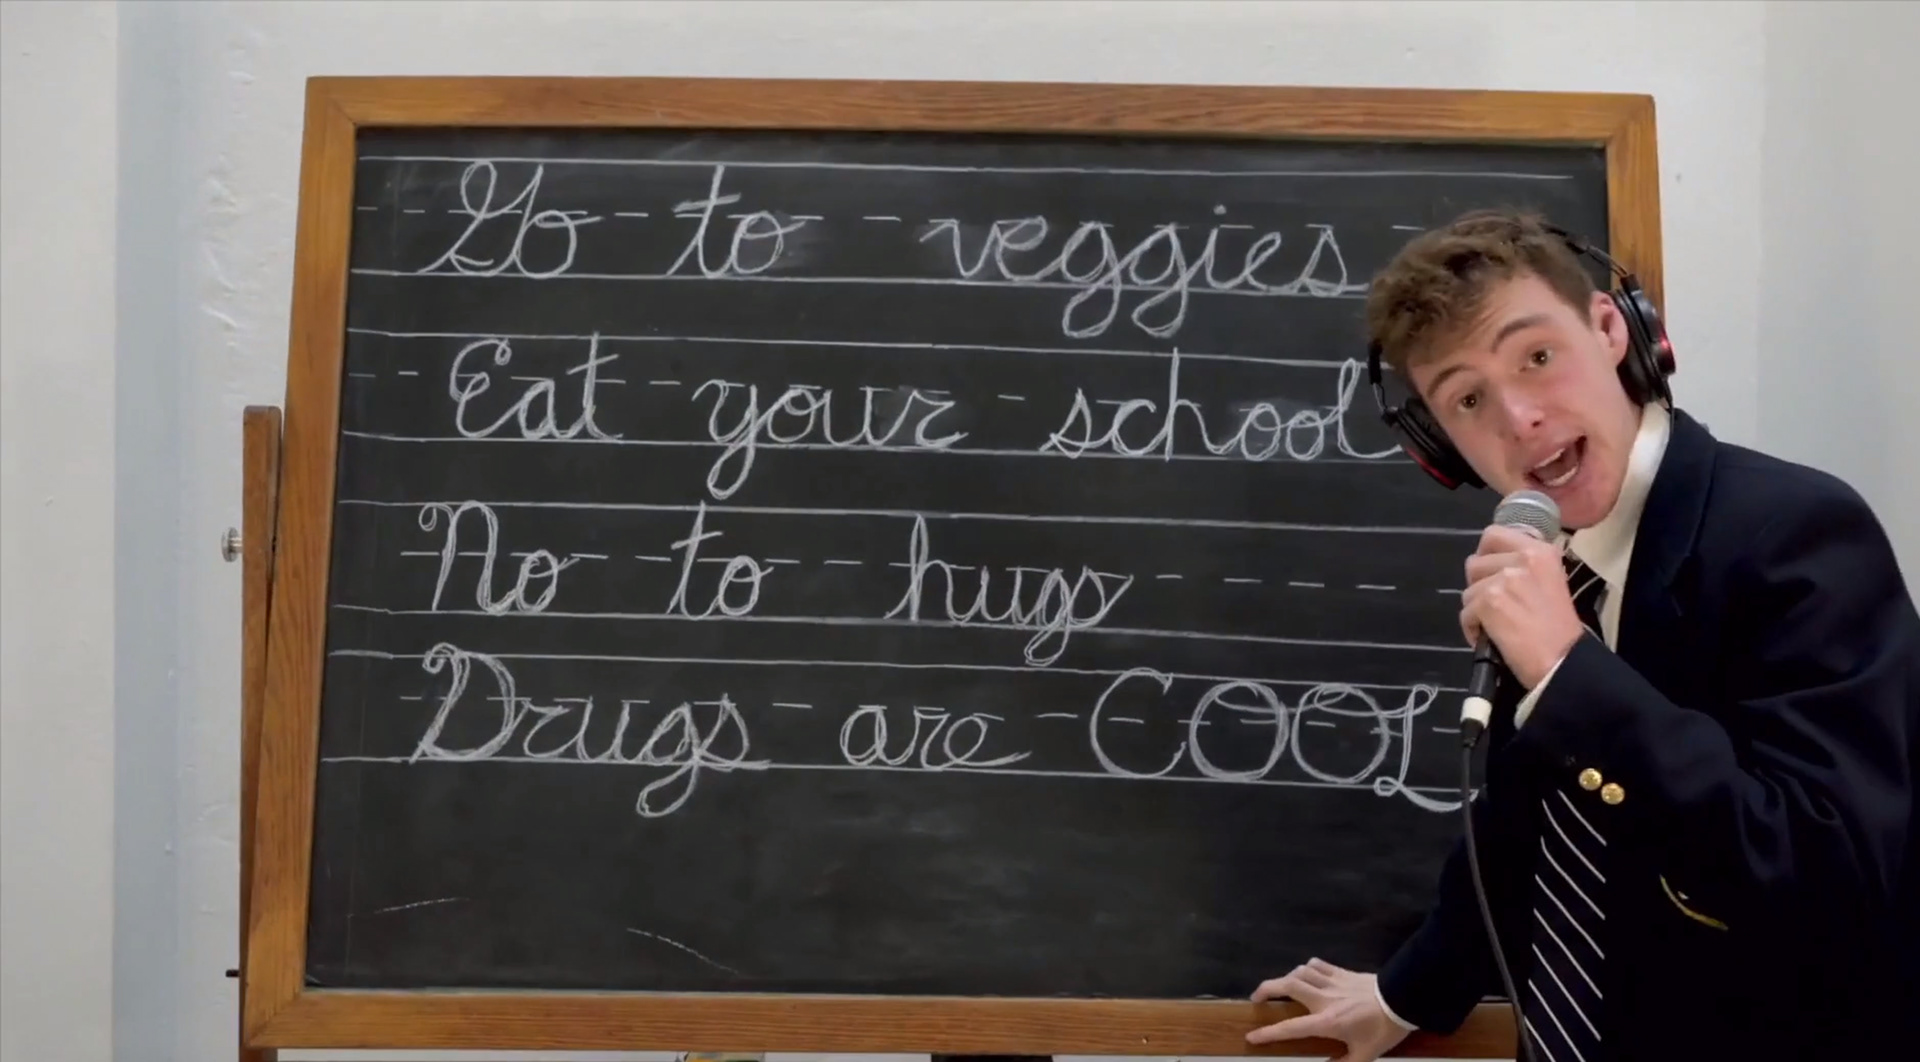 Go to veggies
Eat your school
No to hugs
Drugs are COOL